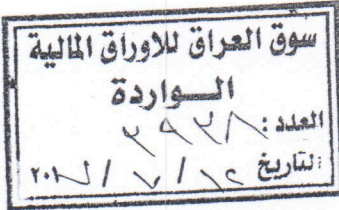 سوق العراق للاوراق المالية
الـــواردة
العدد: ٣٩٣٨
التاريخ ١٢ / ٧ /